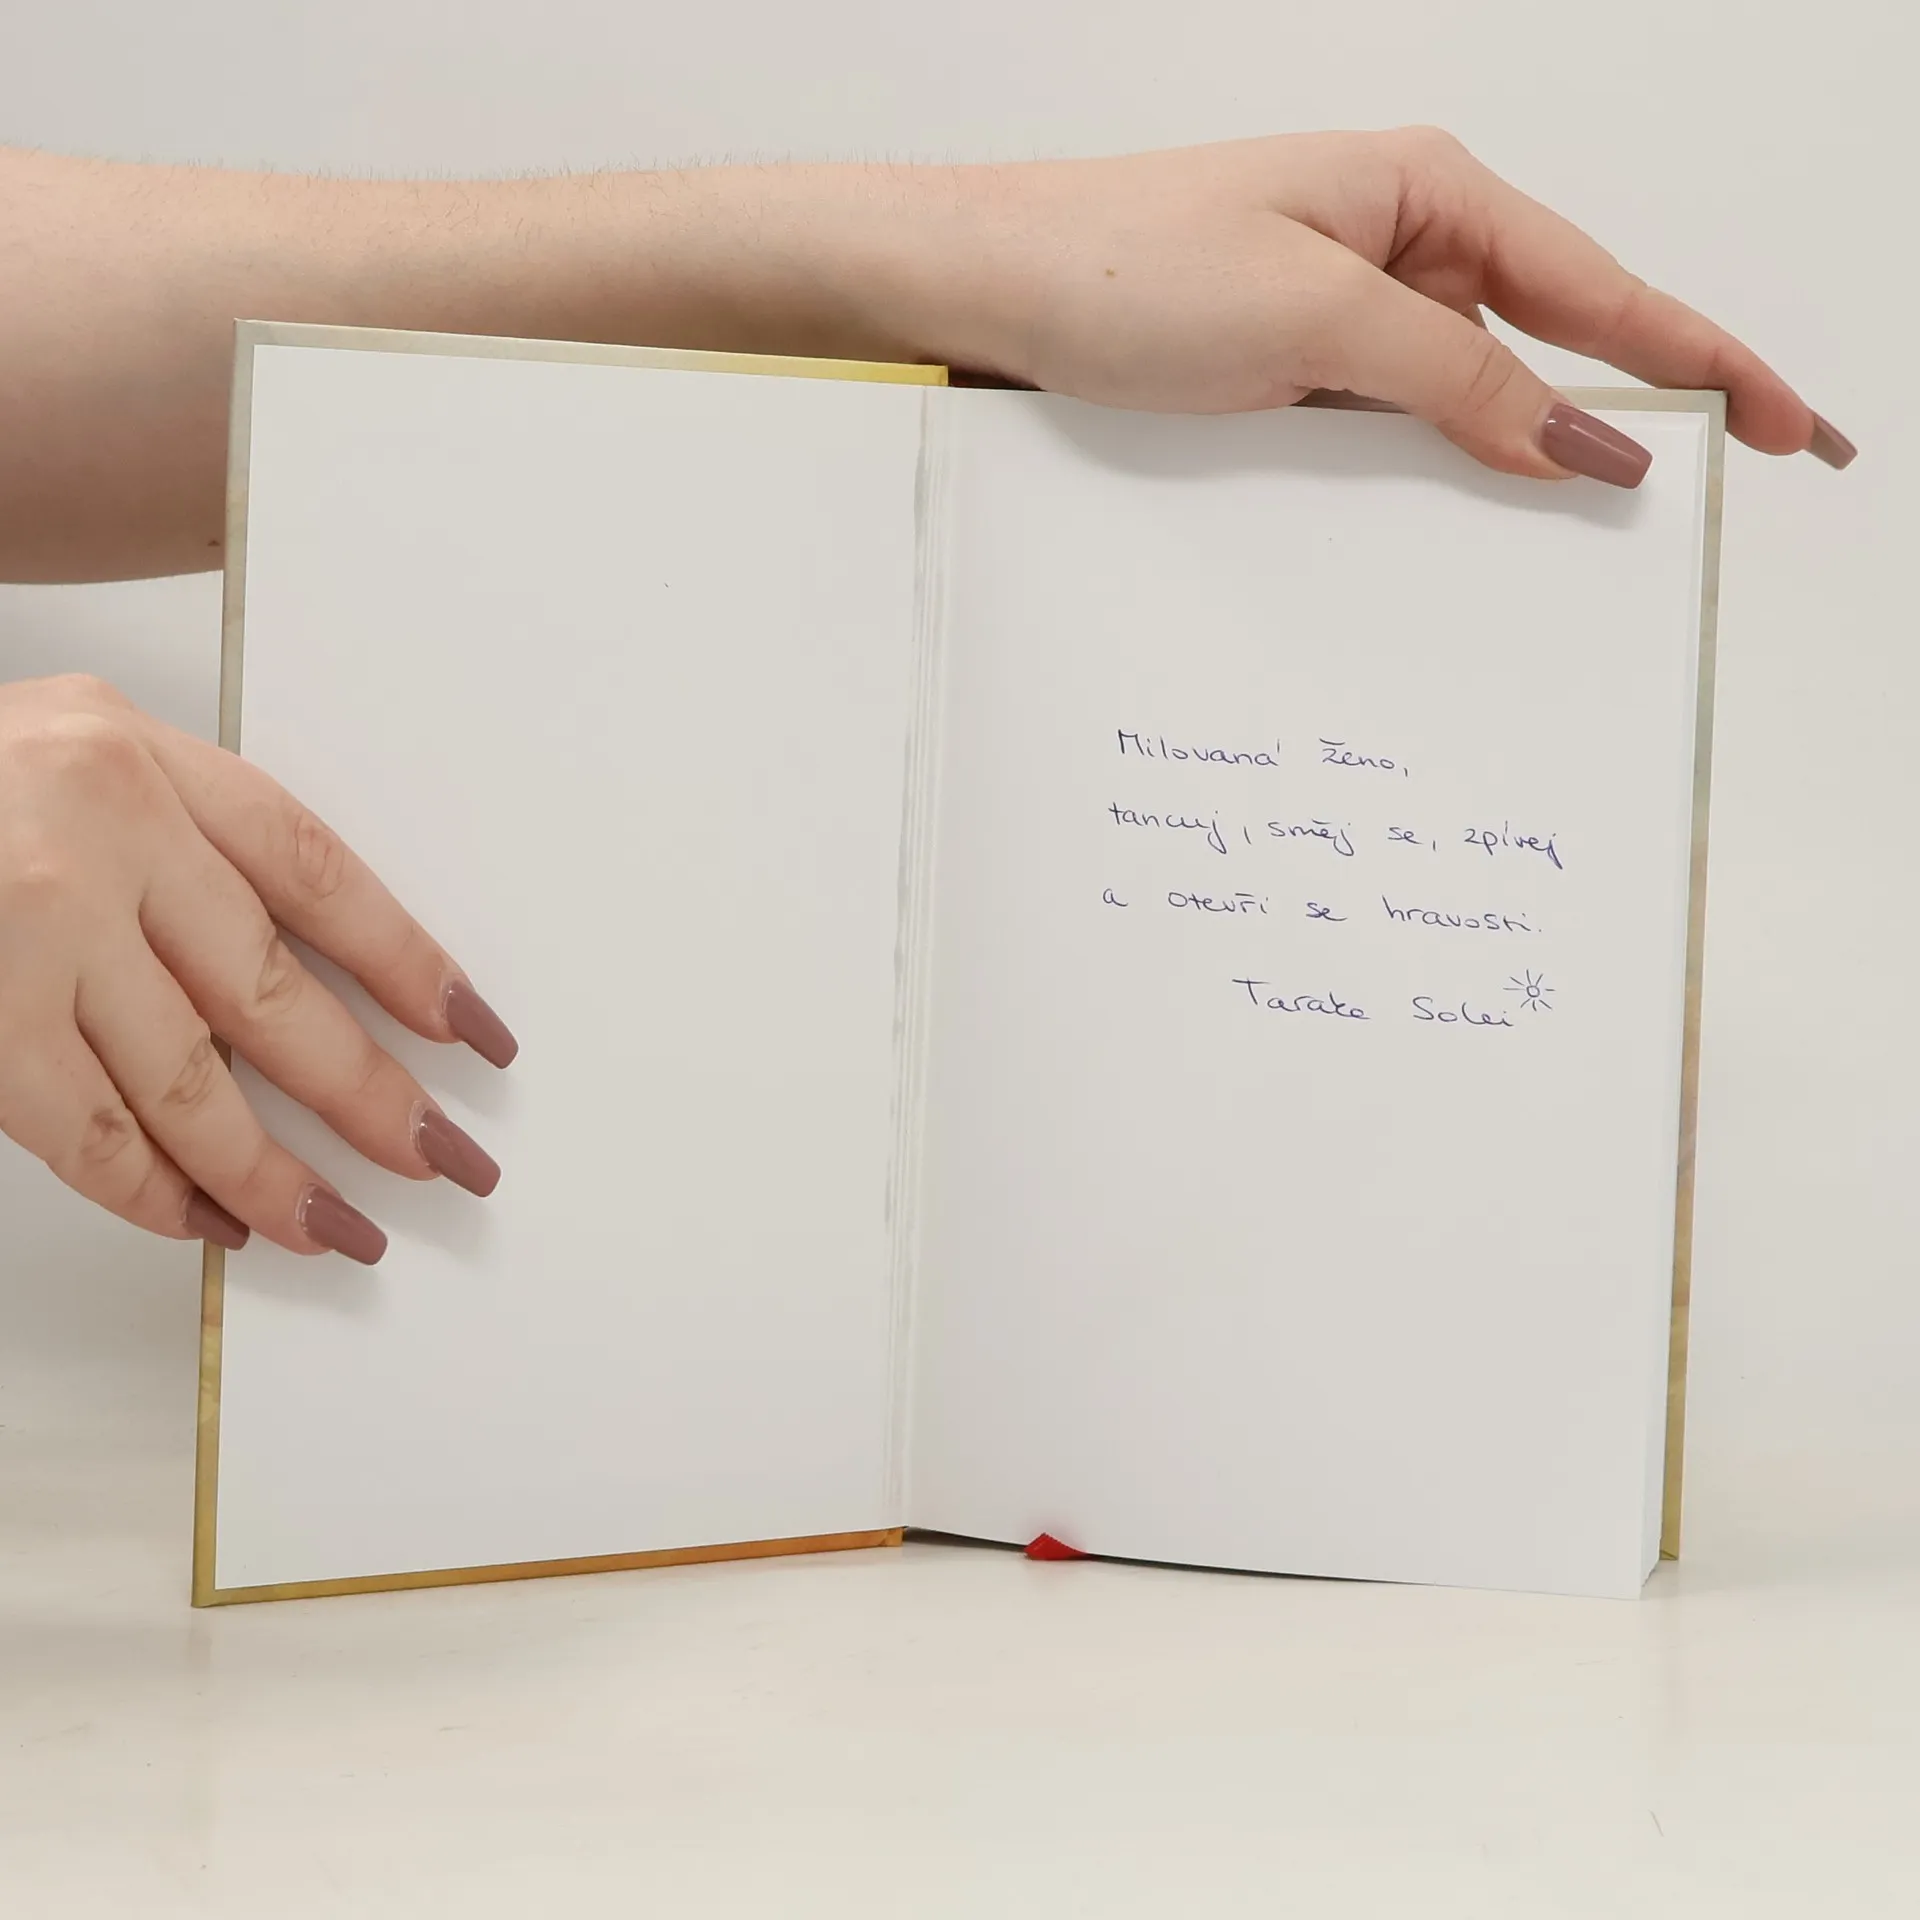 Milovaná ženo,
tancuj, směj se, zpívej
a otevři se hravosti.
Tarake Solei